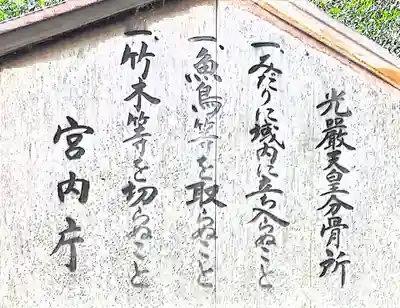 光嚴天皇分骨所
一、みだりに域内に立ち入らぬこと
一、魚鳥等を取らぬこと
一、竹木等を切らぬこと
宮内庁